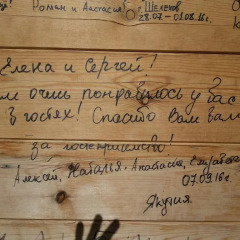 Роман и Анастасия! г. Шелехов
28.07 – 01.08.16г.
Елена и Сергей!
очень понравилось у Вас
в гостях! Спасибо Вам
за гостеприимство!
Алексей, Наталья, Анастасия, Елизавета
07.09.16г
Якутия.